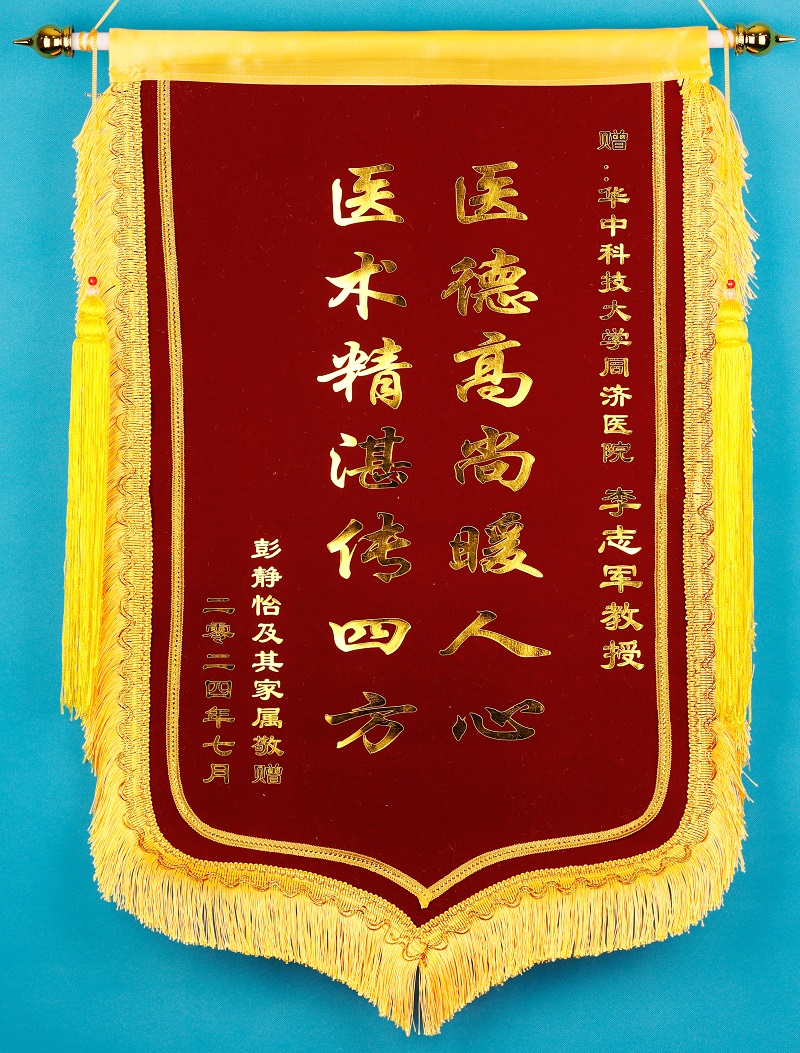 赠：华中科技大学同济医院 李志军教授
医德高尚暖人心
医术精湛传四方
彭静怡及其家属敬赠
二零二四年七月